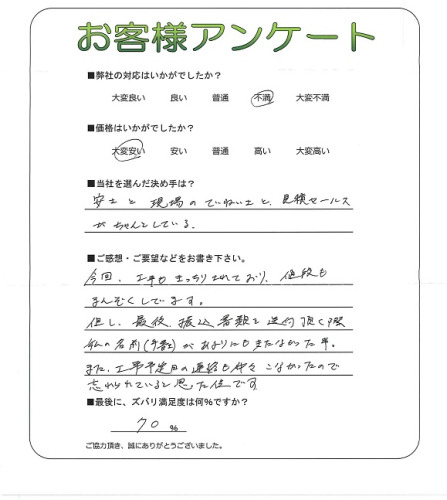 お客様アンケート
■弊社の対応はいかがでしたか？
大変良い 良い 普通 不満 大変不満
■価格はいかがでしたか？
大変安い 安い 普通 高い 大変高い
■当社を選んだ決め手は？
安さと現場のていねいさと、見積セールス
がちゃんとしている。
■ご感想・ご要望などをお書き下さい。
今回、工事もきっちりされており、値段も
まんぞくしています。
但し、最後、振込書類を送付頂く際
私の名前(字数)があまりにもきたなかった事。
また、工事予定日の連絡も中々こなかったので
忘れられていると思った位です
■最後に、ズバリ満足度は何％ですか？
70 %
ご協力頂き、誠にありがとうございました。